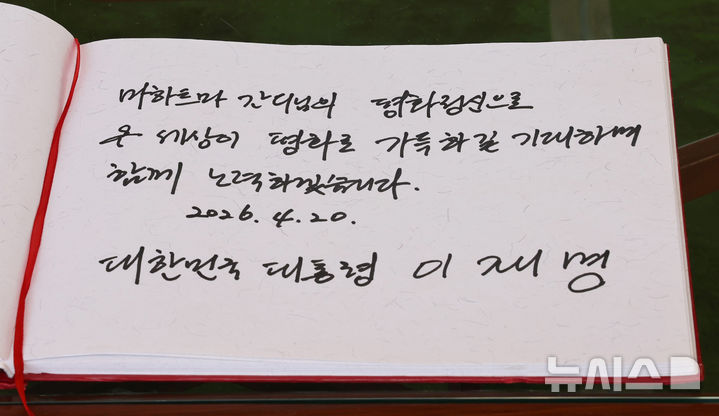 마하트마 간디님의 평화정신으로
온 세상이 평화로 가득하길 기대하며
함께 노력하겠습니다.
2026. 4. 20.
대한민국 대통령 이재명
뉴시스